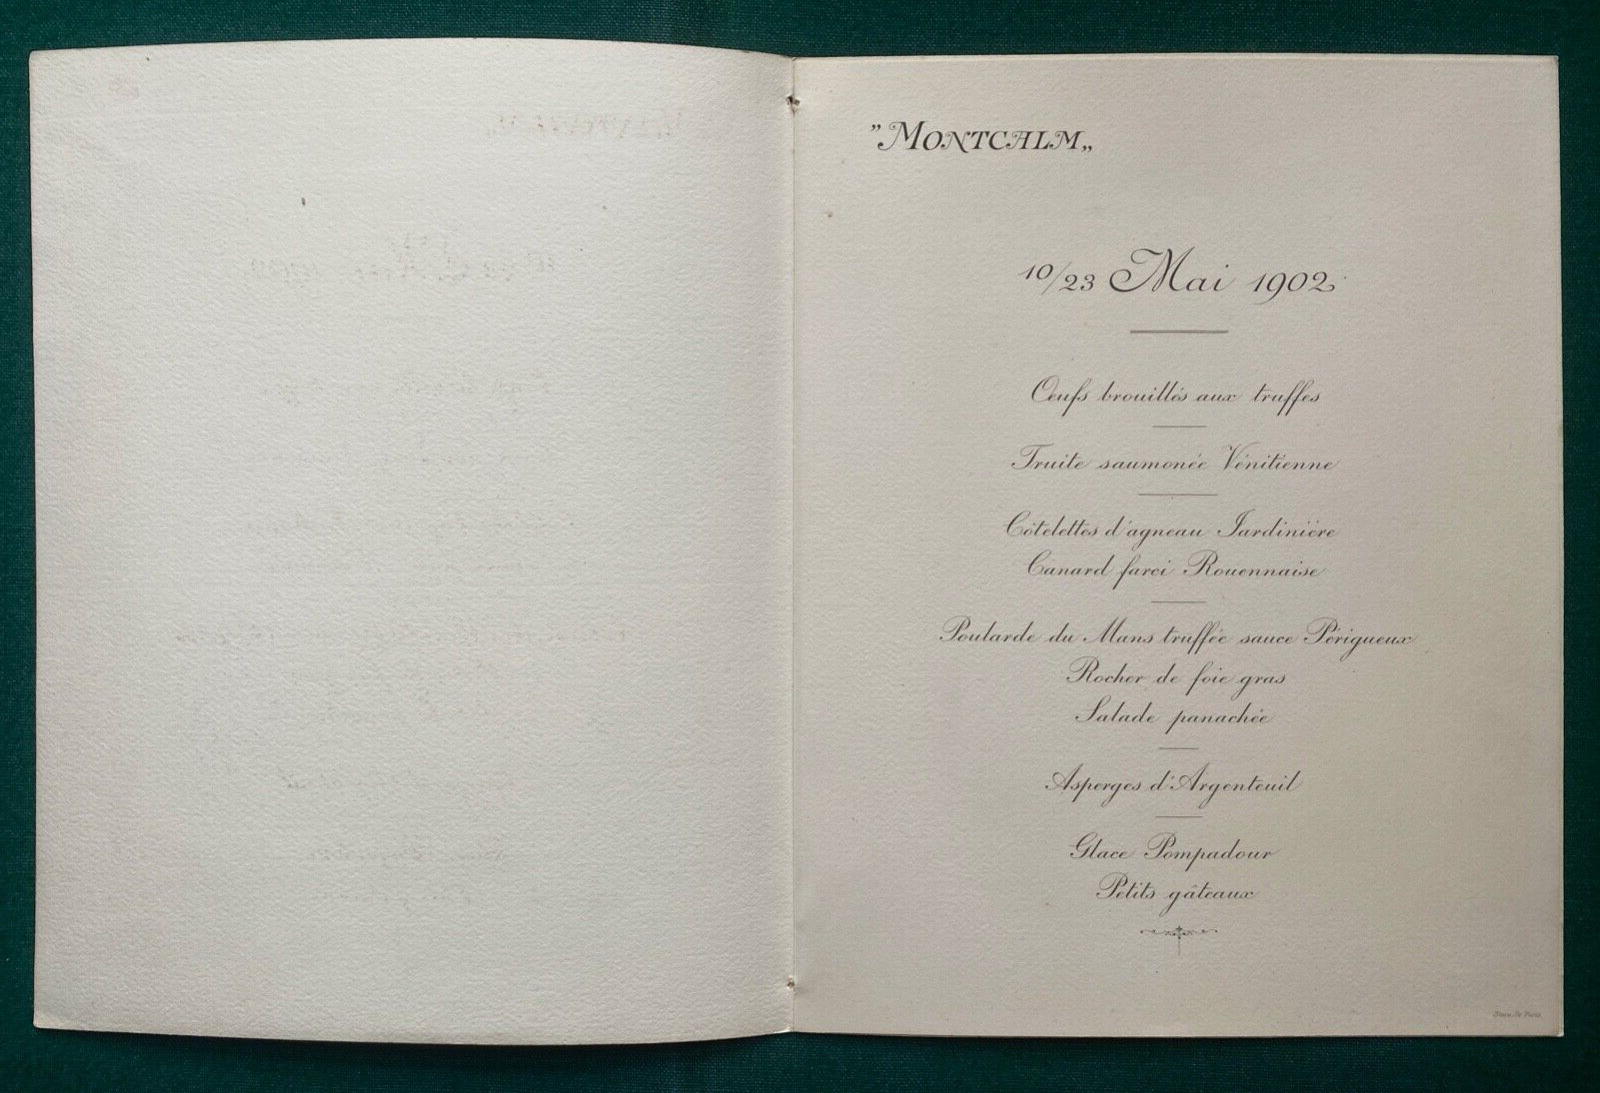 "MONTCALM„
10/23 Mai 1902.
Œufs brouillés aux truffes
Truite saumonée Vénitienne
Côtelettes d'agneau Jardinière
Canard farci Rouennaise
Poularde du Mans truffée sauce Périgueux
Rocher de foie gras
Salade panachée
Asperges d'Argenteuil
Glace Pompadour
Petits gâteaux
Paris